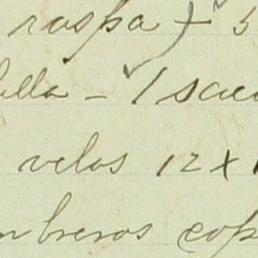 raspa) - 5
lla - 1 sac
velos 12 x
mbreros cop